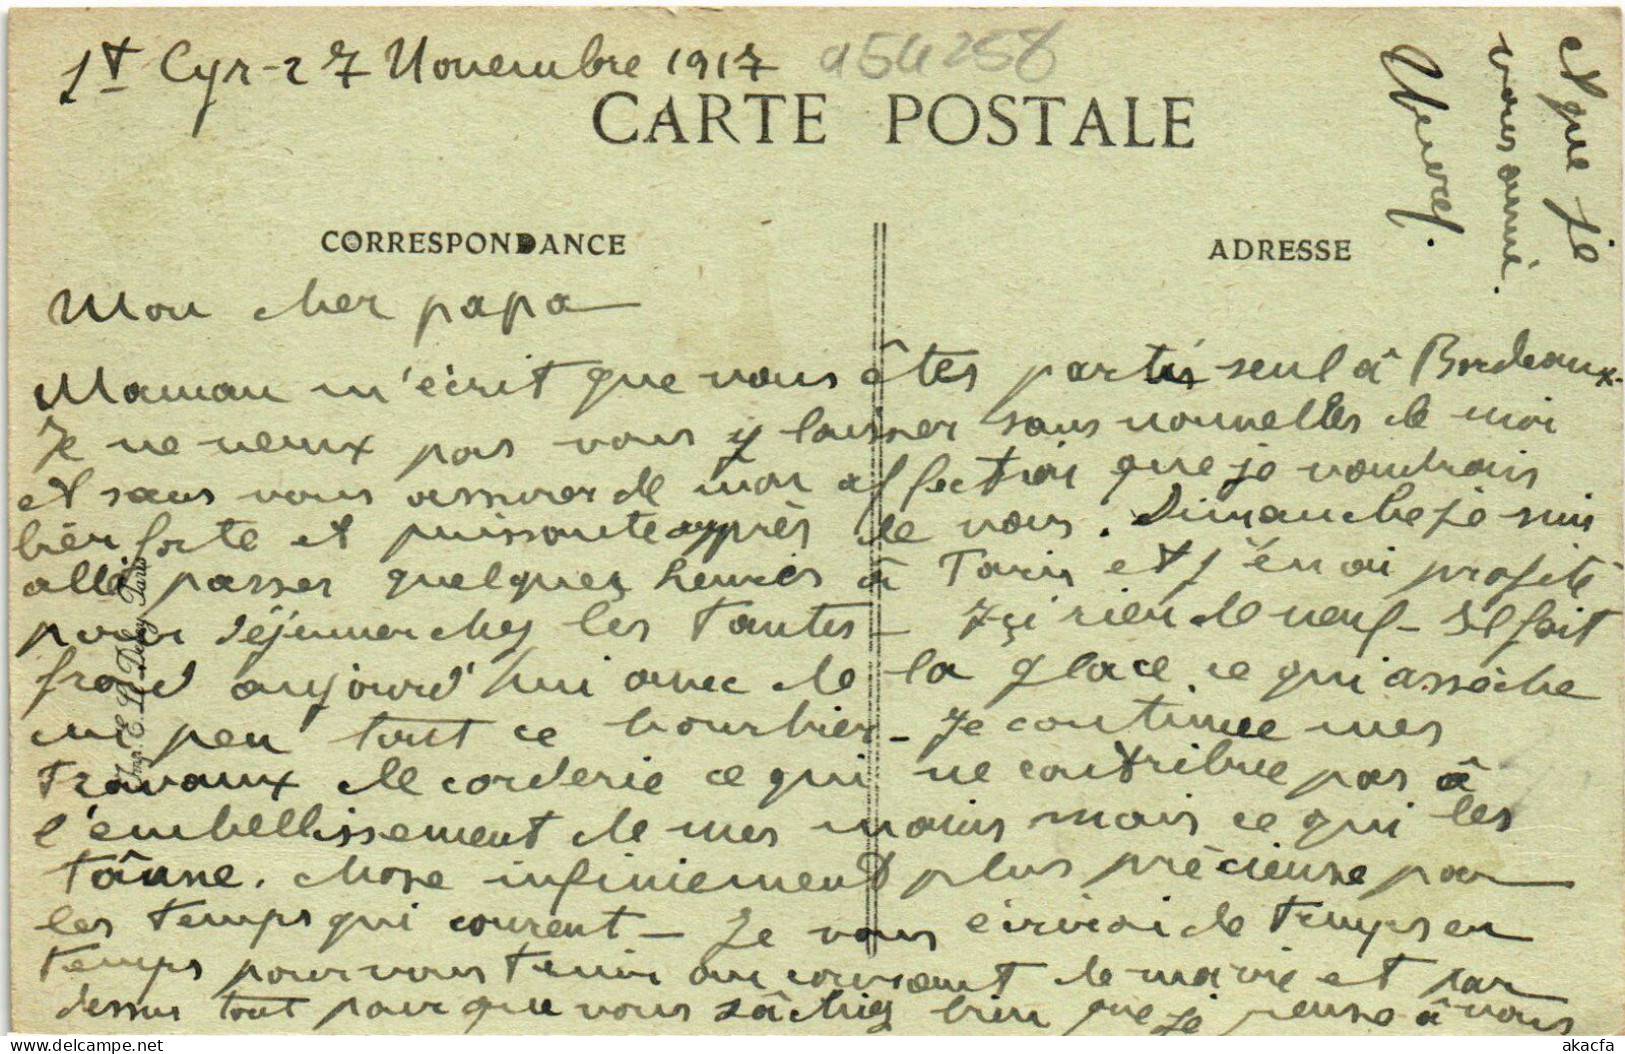 St Cyr - 27 Novembre 1917
954258
CARTE POSTALE
CORRESPONDANCE
ADRESSE
Mon cher papa
Maman m'écrit que vous êtes parti seul à Bordeaux -
Je ne veux pas vous y laisser sans nouvelles de moi
et sans vous assurer de mon affection que je voudrais
bien forte et puissante auprès de vous. Dimanche je suis
allé passer quelques heures à Paris et j'en ai profité
pour déjeuner chez les Tantes - Ici rien de neuf - Il fait
froid aujourd'hui avec de la glace ce qui assèche
un peu tout ce bourbier - Je continue mes
travaux de corderie ce qui ne contribue pas à
l'embellissement de mes mains mais ce qui les
tanne. Chose infiniement plus précieuse par
les temps qui courent - Je vous écrirai de temps en
temps pour vous tenir au courant de ma vie et par
dessus tout pour que vous sachiez bien que je pense à vous
et que je
vous aime.
Imp. E. Le Deley, Paris
akacfa